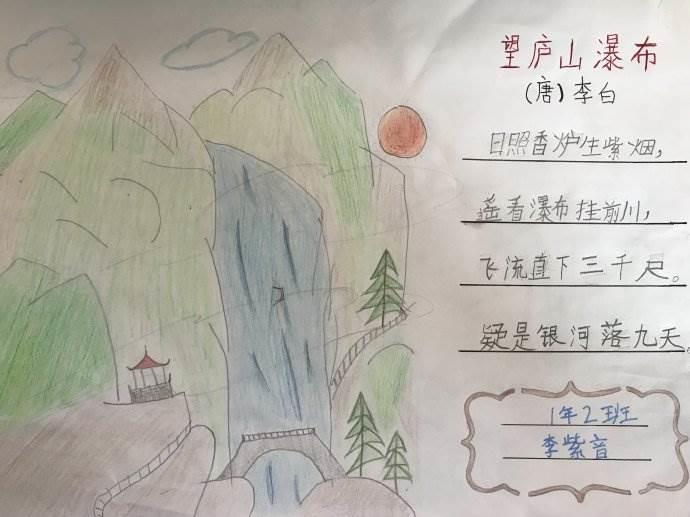 望庐山瀑布
(唐)李白
日照香炉生紫烟,
遥看瀑布挂前川,
飞流直下三千尺。
疑是银河落九天。
1年2班
李紫音